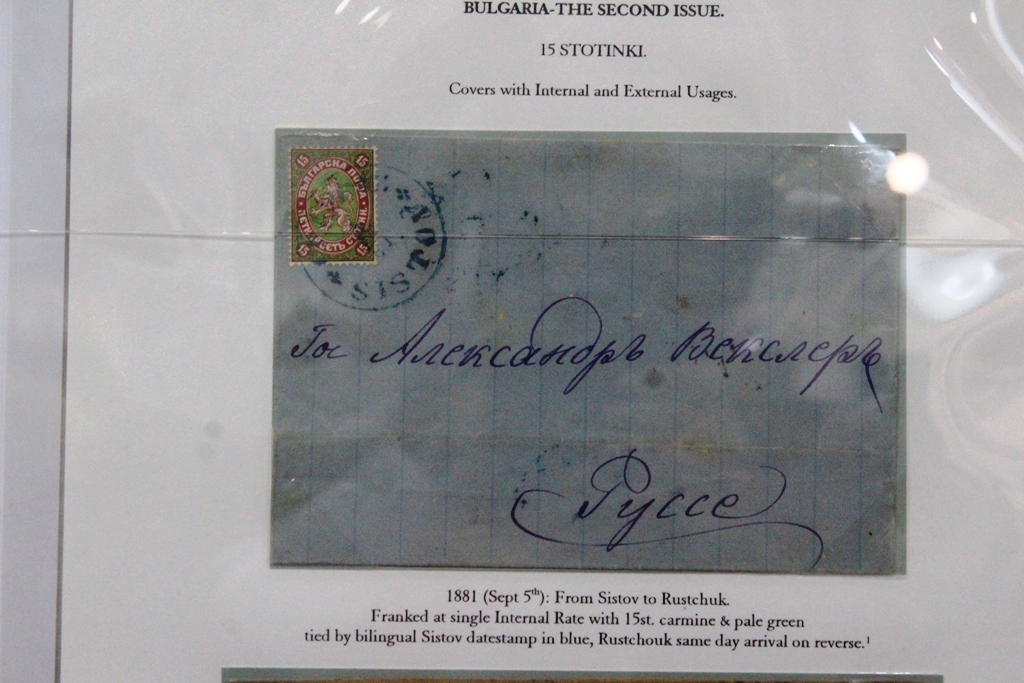 BULGARIA-THE SECOND ISSUE.
15 STOTINKI.
Covers with Internal and External Usages.
15 15
БЪЛГАРСКА ПОЩА
ПЕТНАДЕСЕТЬ СТОТИН.
15 15
SISTOV
Гос Александръ Векслеръ
Руссе
1881 (Sept 5th): From Sistov to Rustchuk.
Franked at single Internal Rate with 15st. carmine & pale green
tied by bilingual Sistov datestamp in blue, Rustchouk same day arrival on reverse.1